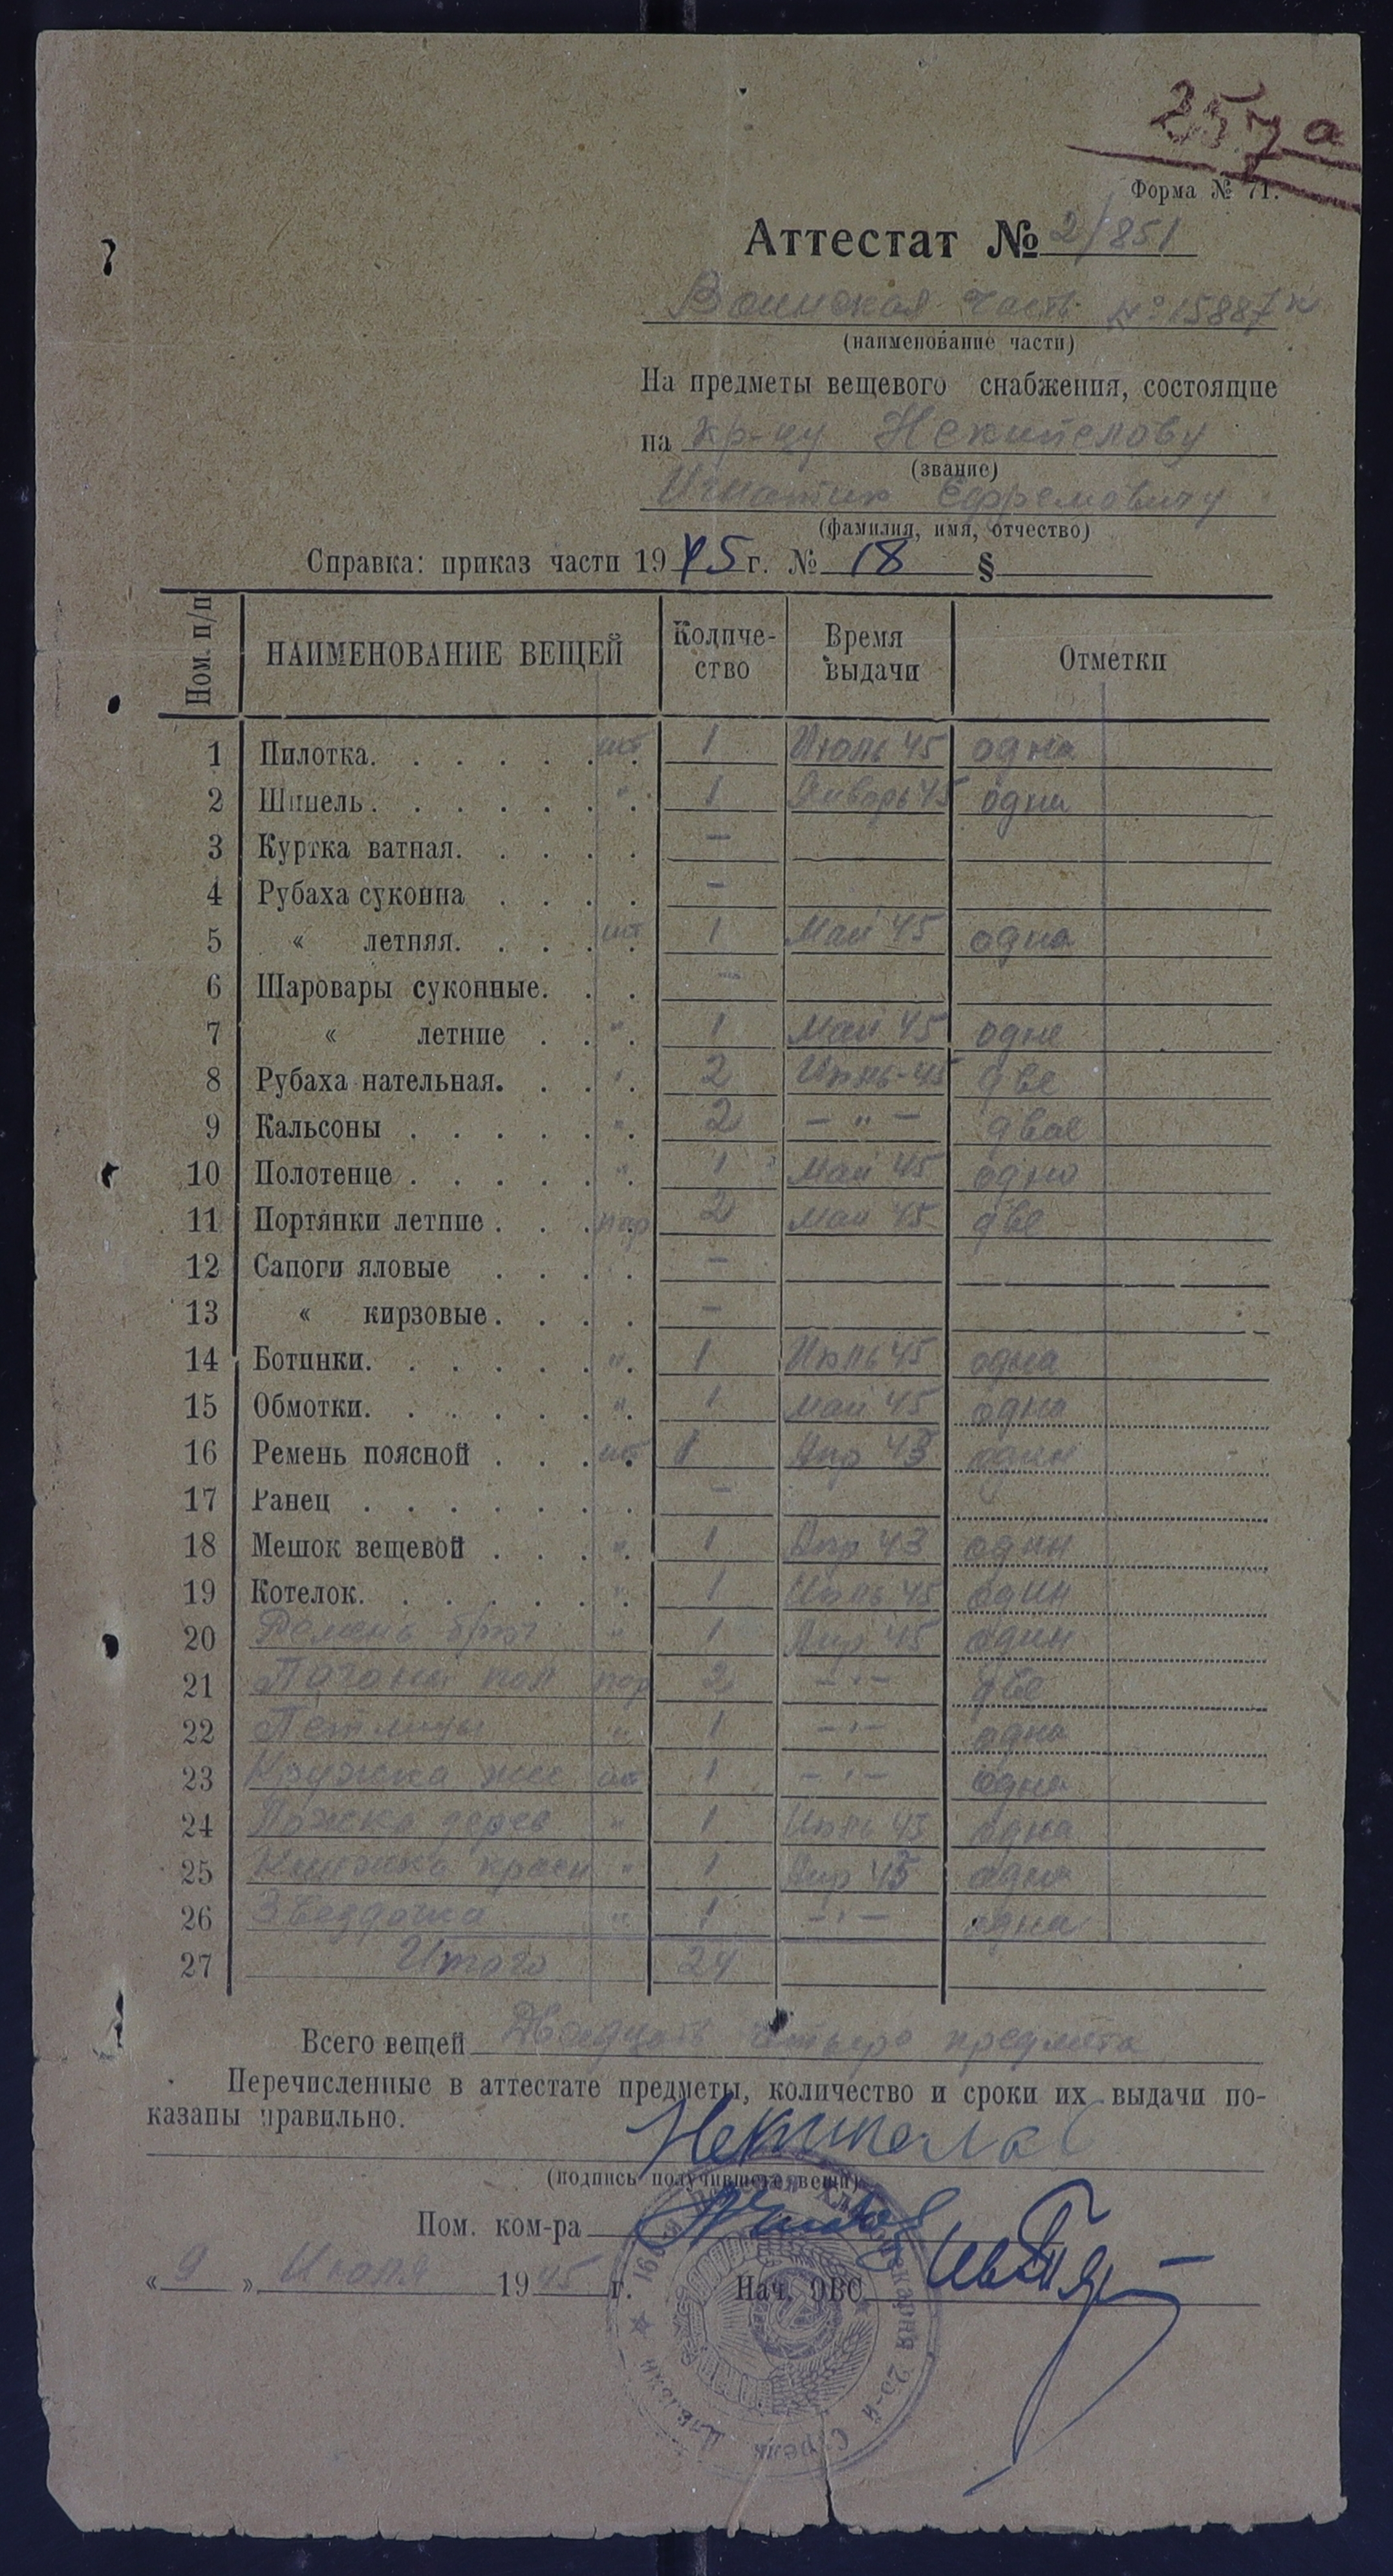 257а
Форма № 71.
Аттестат № 2/851
Воинская часть № 15887 к
(наименование части)
На предметы вещевого снабжения, состоящие
на кр-цу Некипелову
(звание)
Игнатию Ефремовичу
(фамилия, имя, отчество)
Справка: приказ части 1945 г. № 18 §
Ном. п/п НАИМЕНОВАНИЕ ВЕЩЕЙ Количе-ство Время выдачи Отметки
1 Пилотка. шт 1 Июль 45 одна
2 Шинель. " 1 Январь 45 одна
3 Куртка ватная. —
4 Рубаха суконна —
5 « летняя. шт 1 Май 45 одна
6 Шаровары суконные. —
7 « летние " 1 Май 45 одне
8 Рубаха нательная. " 2 Июнь-45 две
9 Кальсоны " 2 — " — двое
10 Полотенце " 1 Май 45 одно
11 Портянки летние пар 2 Май 45 две
12 Сапоги яловые —
13 « кирзовые. —
14 Ботинки. " 1 Июнь 45 одна
15 Обмотки. " 1 Май 45 одна
16 Ремень поясной шт 1 Апр 43 один
17 Ранец —
18 Мешок вещевой " 1 Апр 43 один
19 Котелок. " 1 Июнь 45 один
20 Ремень брюч " 1 Апр 45 один
21 Пагоны пол пар 2 — " — две
22 Петлицы " 1 — " — одна
23 Кружка жес шт 1 — " — одна
24 Ложка дерев " 1 Июнь 45 одна
25 Книжка красн " 1 Апр 45 одна
26 Звездочка " 1 — " — одна
27 Итого 24
Всего вещей Двадцать четыре предмета
Перечисленные в аттестате предметы, количество и сроки их выдачи по-
казаны правильно.
Некипелов
(подпись получившего вещи)
Пом. ком-ра
« 9 » Июля 1945 г. Нач. ОВС